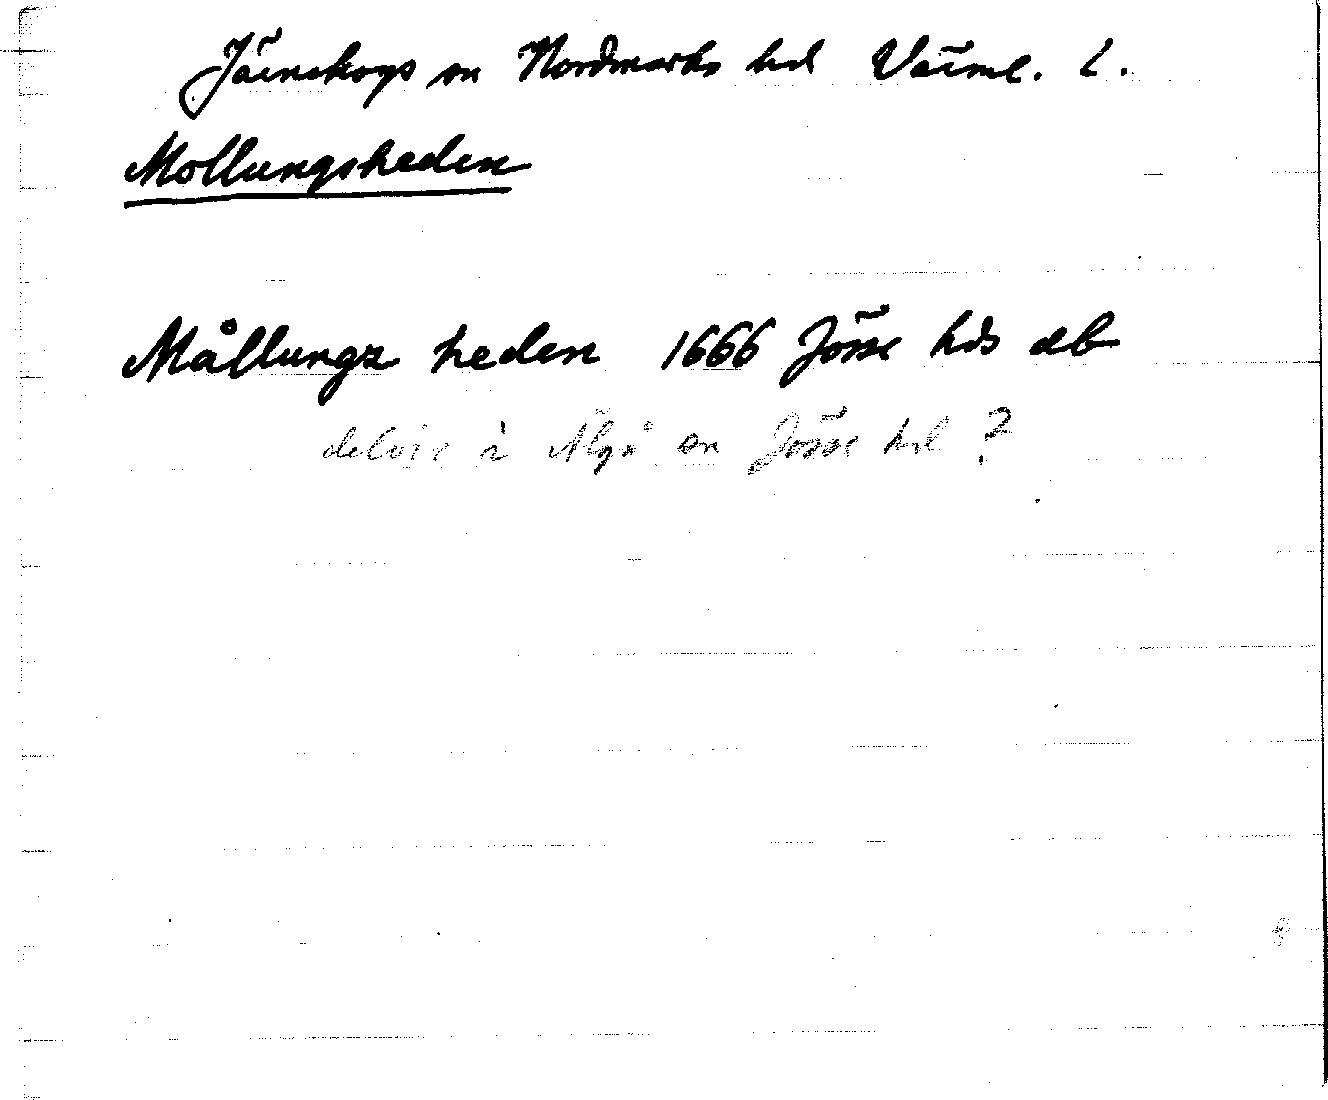 Järnskogs sn Nordmarks hd Värml. l.
Mollungsheden
Mållungz heden 1666 Jösse hds db
delvis i Älgå sn Jösse hd ?